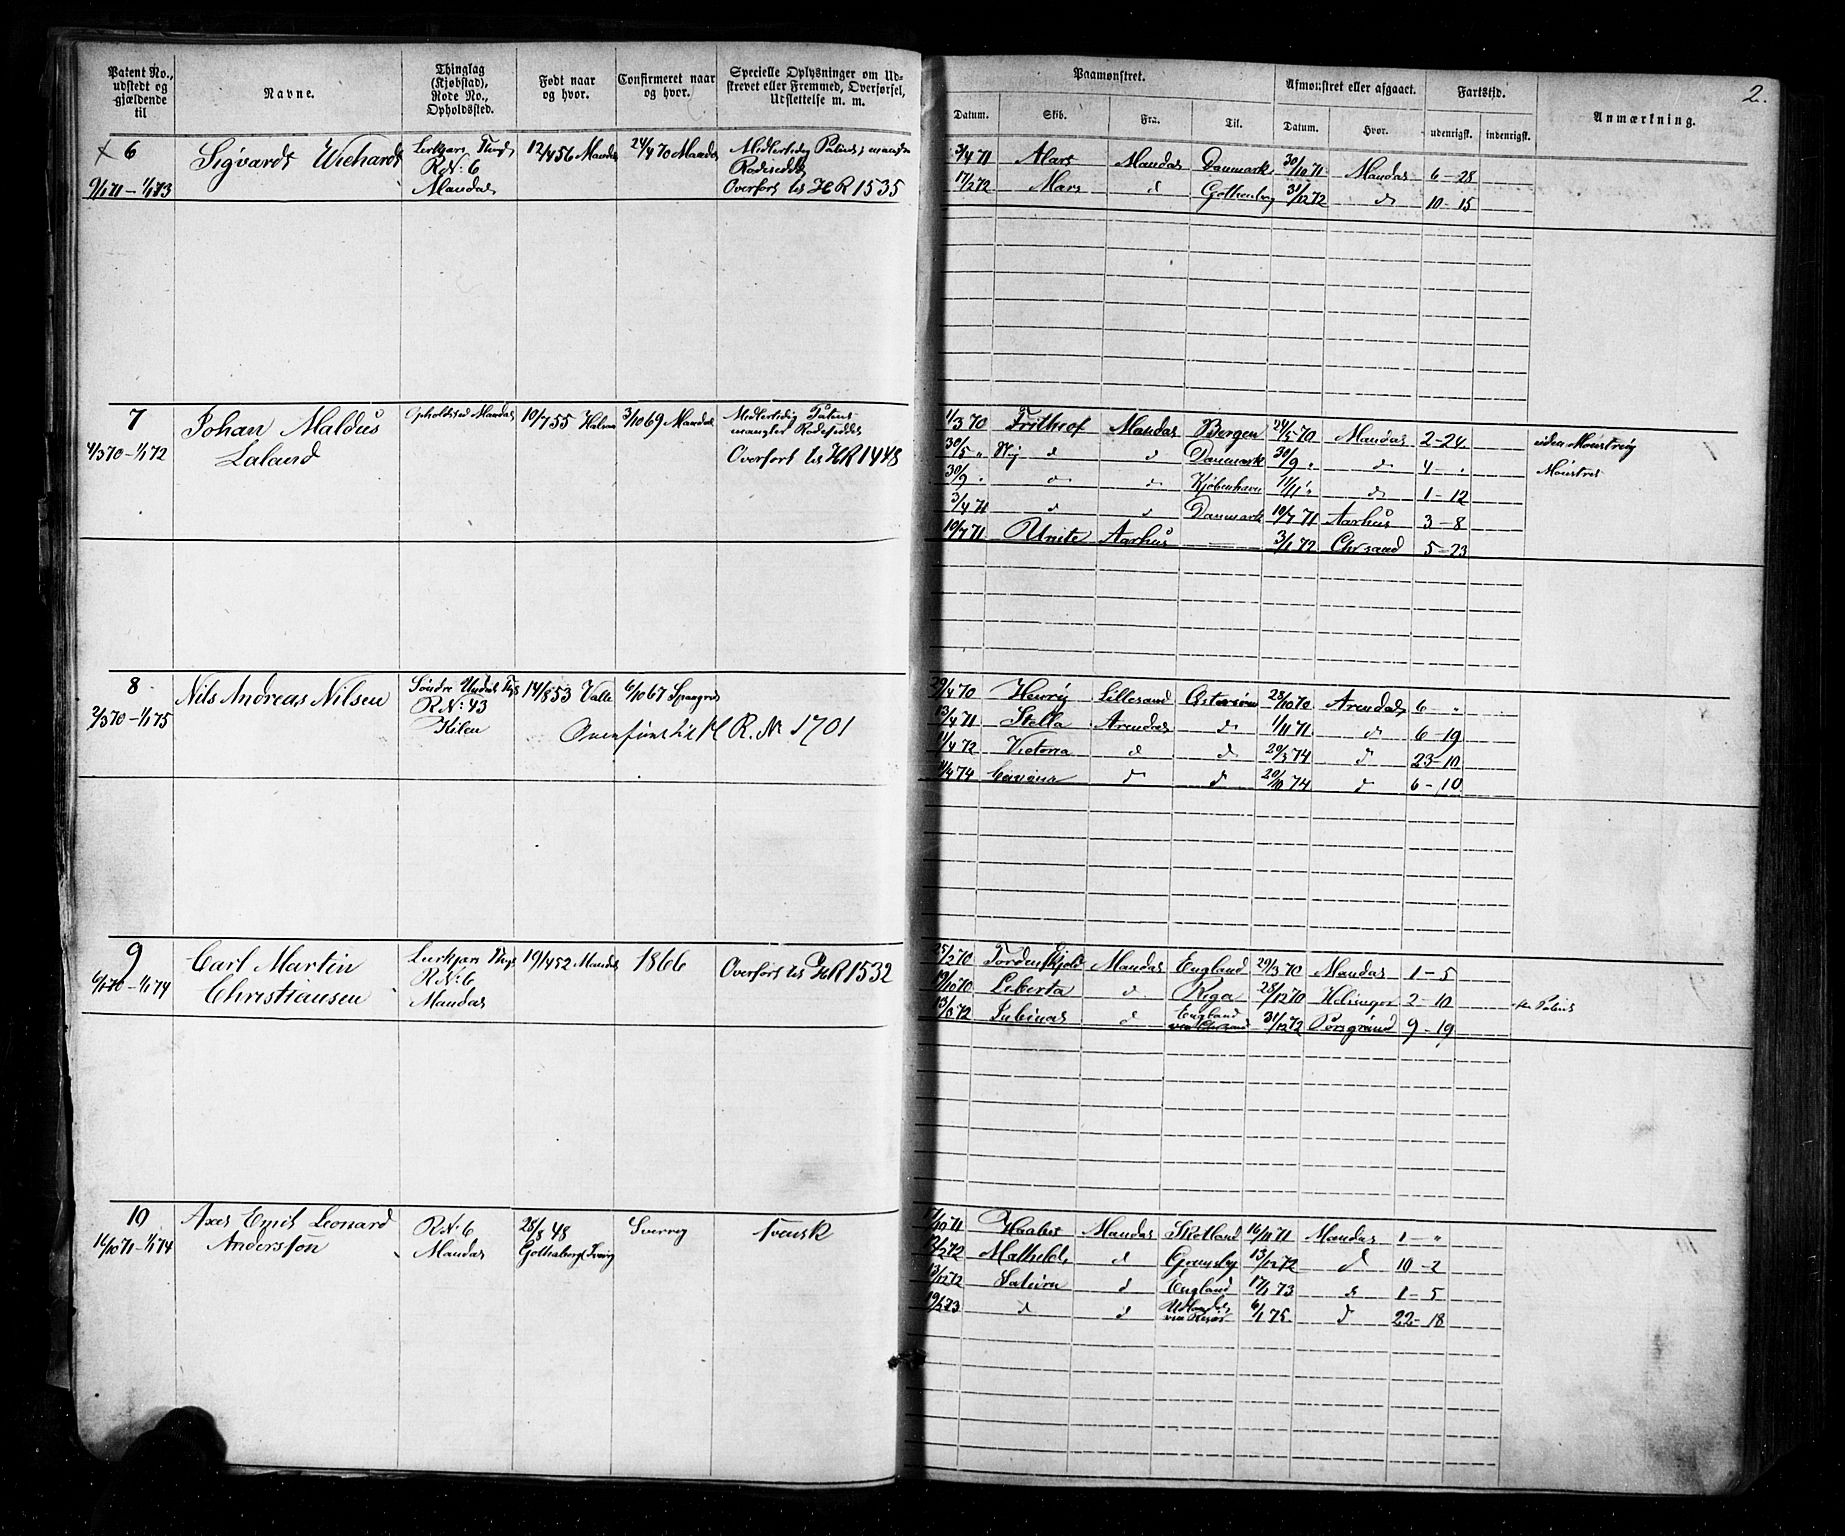 2.
Patent No., udstedt og gjældende til
Navne.
Thinglag (Kjøbstad), Rode No., Opholdssted.
Født naar og hvor.
Confirmeret naar og hvor.
Specielle Oplysninger om Udskrevet eller Fremmed, Overførsel, Udslettelse m. m.
Paamønstret.
Datum. Skib. Fra. Til.
Afmønstret eller afgaaet.
Datum. Hvor.
Fartstid.
udenrigsk. indenrigsk.
Anmærkning.
6
9/1 71 – 1/1 73
Sigvard Wichard
R№ 6
Mandal
12/4 56 Mandal
24/4 70 Mandal
Midlertidig Patent, mangler
Rodeseddel
Overført til HR 1535
3/4 71 Mars Mandal Danmark 30/10 71 Mandal 6 – 28
17/2 72 Mars d Gothenborg 31/12 72 d 10 – 15
7
4/3 70 – 1/1 72
Johan Maldus
Laland
Opholdssted Mandal
10/7 55
3/10 69 Mandal
Midlertidig Patent
mangler Rodeseddel
Overført til HR 1448
1/3 70 Frithiof Mandal Bergen 24/5 70 Mandal 2 – 24 uden Mønstring
30/5 " d d Danmark 30/9 " d 4 – " Mønstret
30/9 " d d Kjøbenhavn 11/11 " d 1 – 12
3/4 71 d d Danmark 10/7 71 Aarhus 3 – 8
10/7 71 Unite Aarhus — 3/1 72 Chrsand 5 – 23
8
2/3 70 – 1/1 75
Nils Andreas Nilsen
Søndre Undal
R№ 43
Kilen
14/8 53 Valle
6/10 67
Overført til H. R. № 1701
29/4 70 Henry Lillesand Østersøen 28/10 70 Arendal 6 – "
13/4 71 Stella Arendal d 1/11 71 d 6 – 19
11/4 72 Victoria d d 20/3 74 d 23 – 10
d d 20/10 74 d 6 – 10
9
6/1 70 – 1/1 74
Carl Martin
Christiansen
R№ 6
Mandal
19/1 52 Mandal
1866
Overført til HR 1532
25/2 70 Tordenskjold Mandal England 29/3 70 Mandal 1 – 5
19/10 70 Liberta d Riga 28/12 70 Helsingør 2 – 10
13/3 72 d England via Chrsand 31/12 72 Porsgrund 9 – 19
10
16/10 71 – 1/1 74
Axel Emil Leonard
Andersson
R№ 6
Mandal
28/8 48
Gothaborg Sverig
Sverrig
Svensk
17/10 71 Haabet Mandal Skotland 16/11 71 Mandal 1 – "
12/2 72 Mathilde d Grimsby 13/12 72 d 10 – 2
13/12 72 Saturn d England 17/1 73 d 1 – 5
19/2 73 d d Udlandet 6/1 75 d 22 – 18